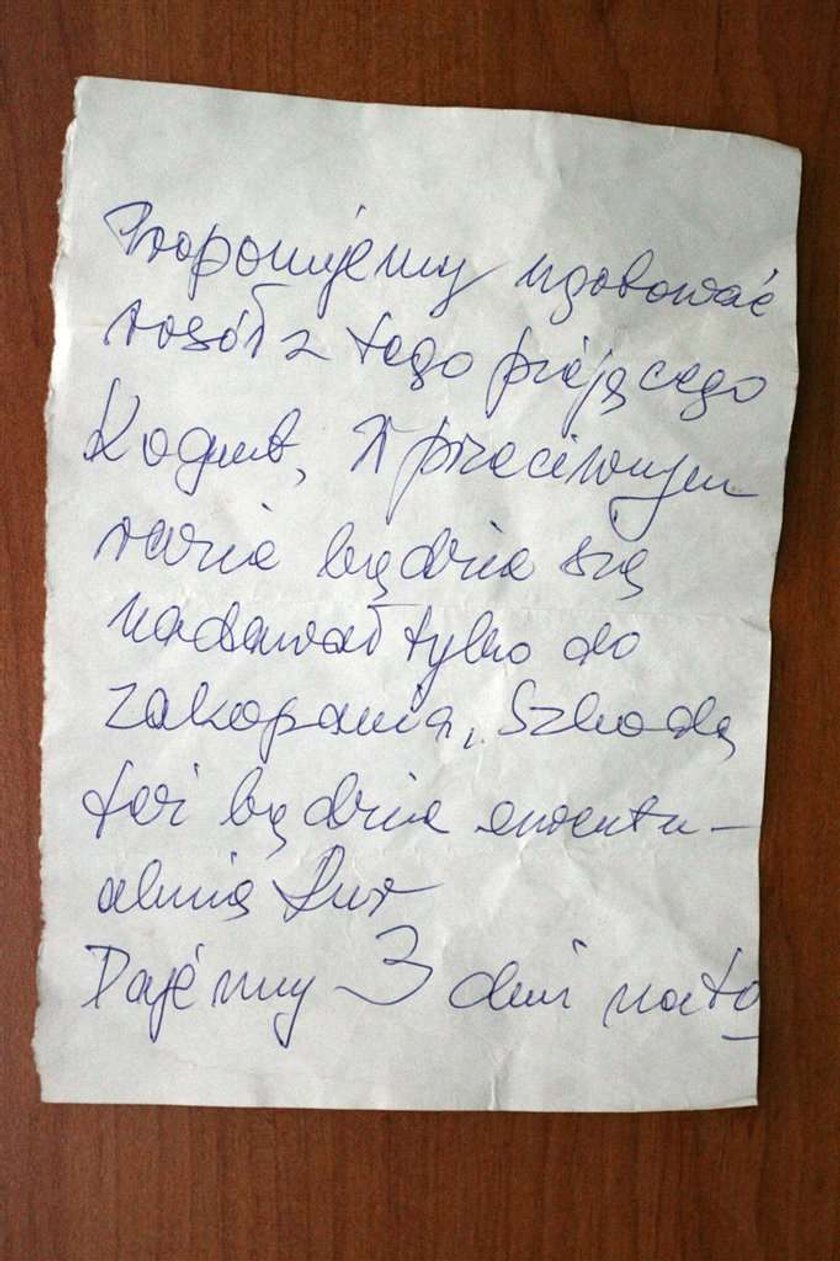 Proponujemy ugotować
rosół z tego piejącego
Koguta, W przeciwnym
razie będzie się
nadawał tylko do
zakopania, Szkodą
też będzie ewentu-
alnią kur
Dajemy 3 dni na to